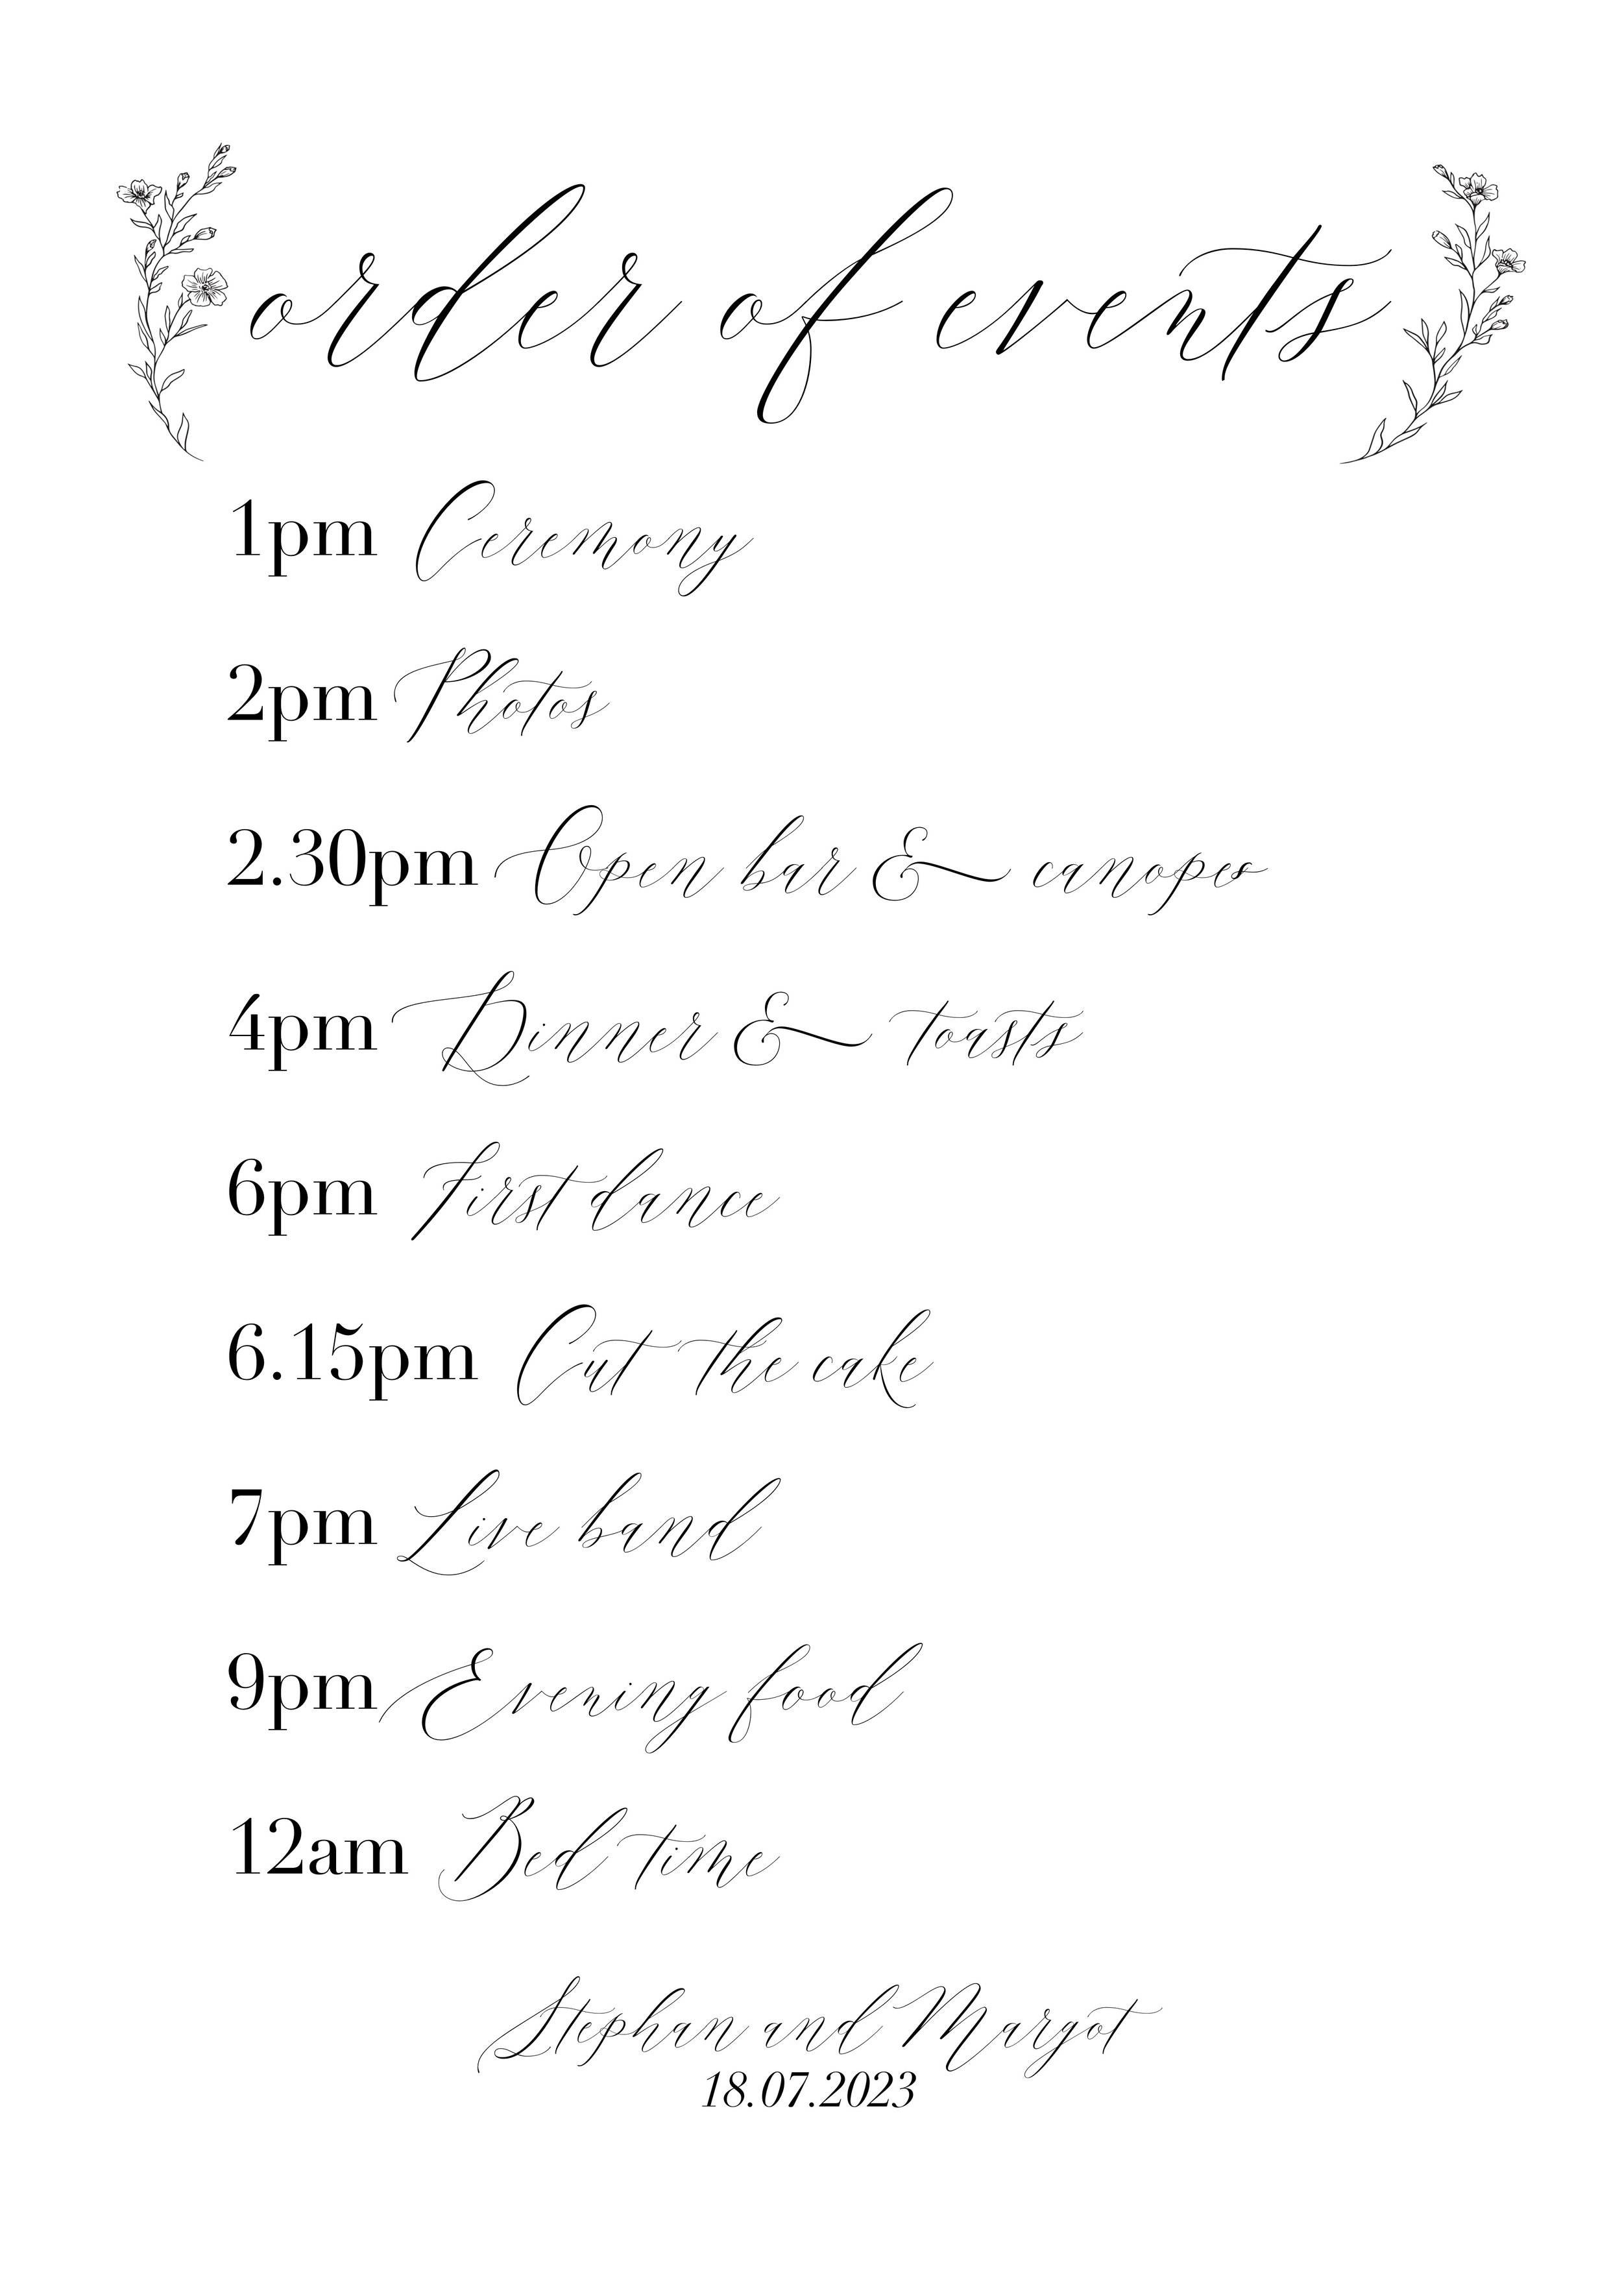 order of events
1pm Ceremony
2pm Photos
2.30pm Open bar & canopes
4pm Dinner & toasts
6pm First dance
6.15pm Cut the cake
7pm Live band
9pm Evening food
12am Bed time
Stephan and Margot
18.07.2023